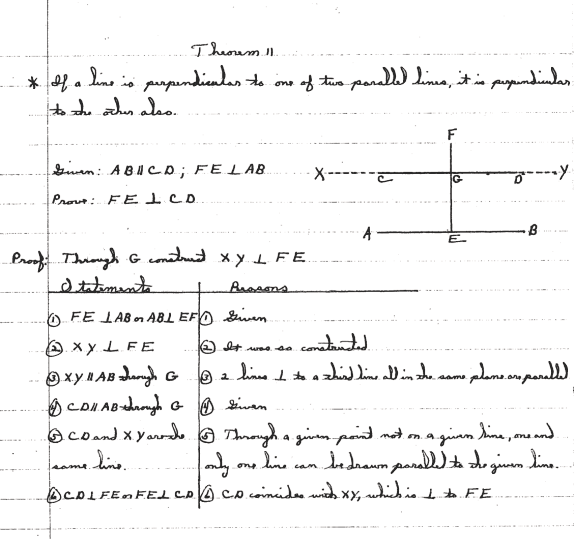 Theorem 11
* If a line is perpendicular to one of two parallel lines, it is perpendicular
to the other also.
F
Given: AB∥CD; FE ⊥ AB
X C G D Y
Prove: FE ⊥ CD
A E B
Proof: Through G construct XY ⊥ FE
Statements Reasons
① FE ⊥ AB or AB ⊥ EF ① Given
② XY ⊥ FE ② It was so constructed
③ XY ∥ AB through G ③ 2 lines ⊥ to a third line all in the same plane are parallel
④ CD ∥ AB through G ④ Given
⑤ CD and XY are the ⑤ Through a given point not on a given line, one and
same line. only one line can be drawn parallel to the given line.
⑥ CD ⊥ FE or FE ⊥ CD ⑥ CD coincides with XY, which is ⊥ to FE